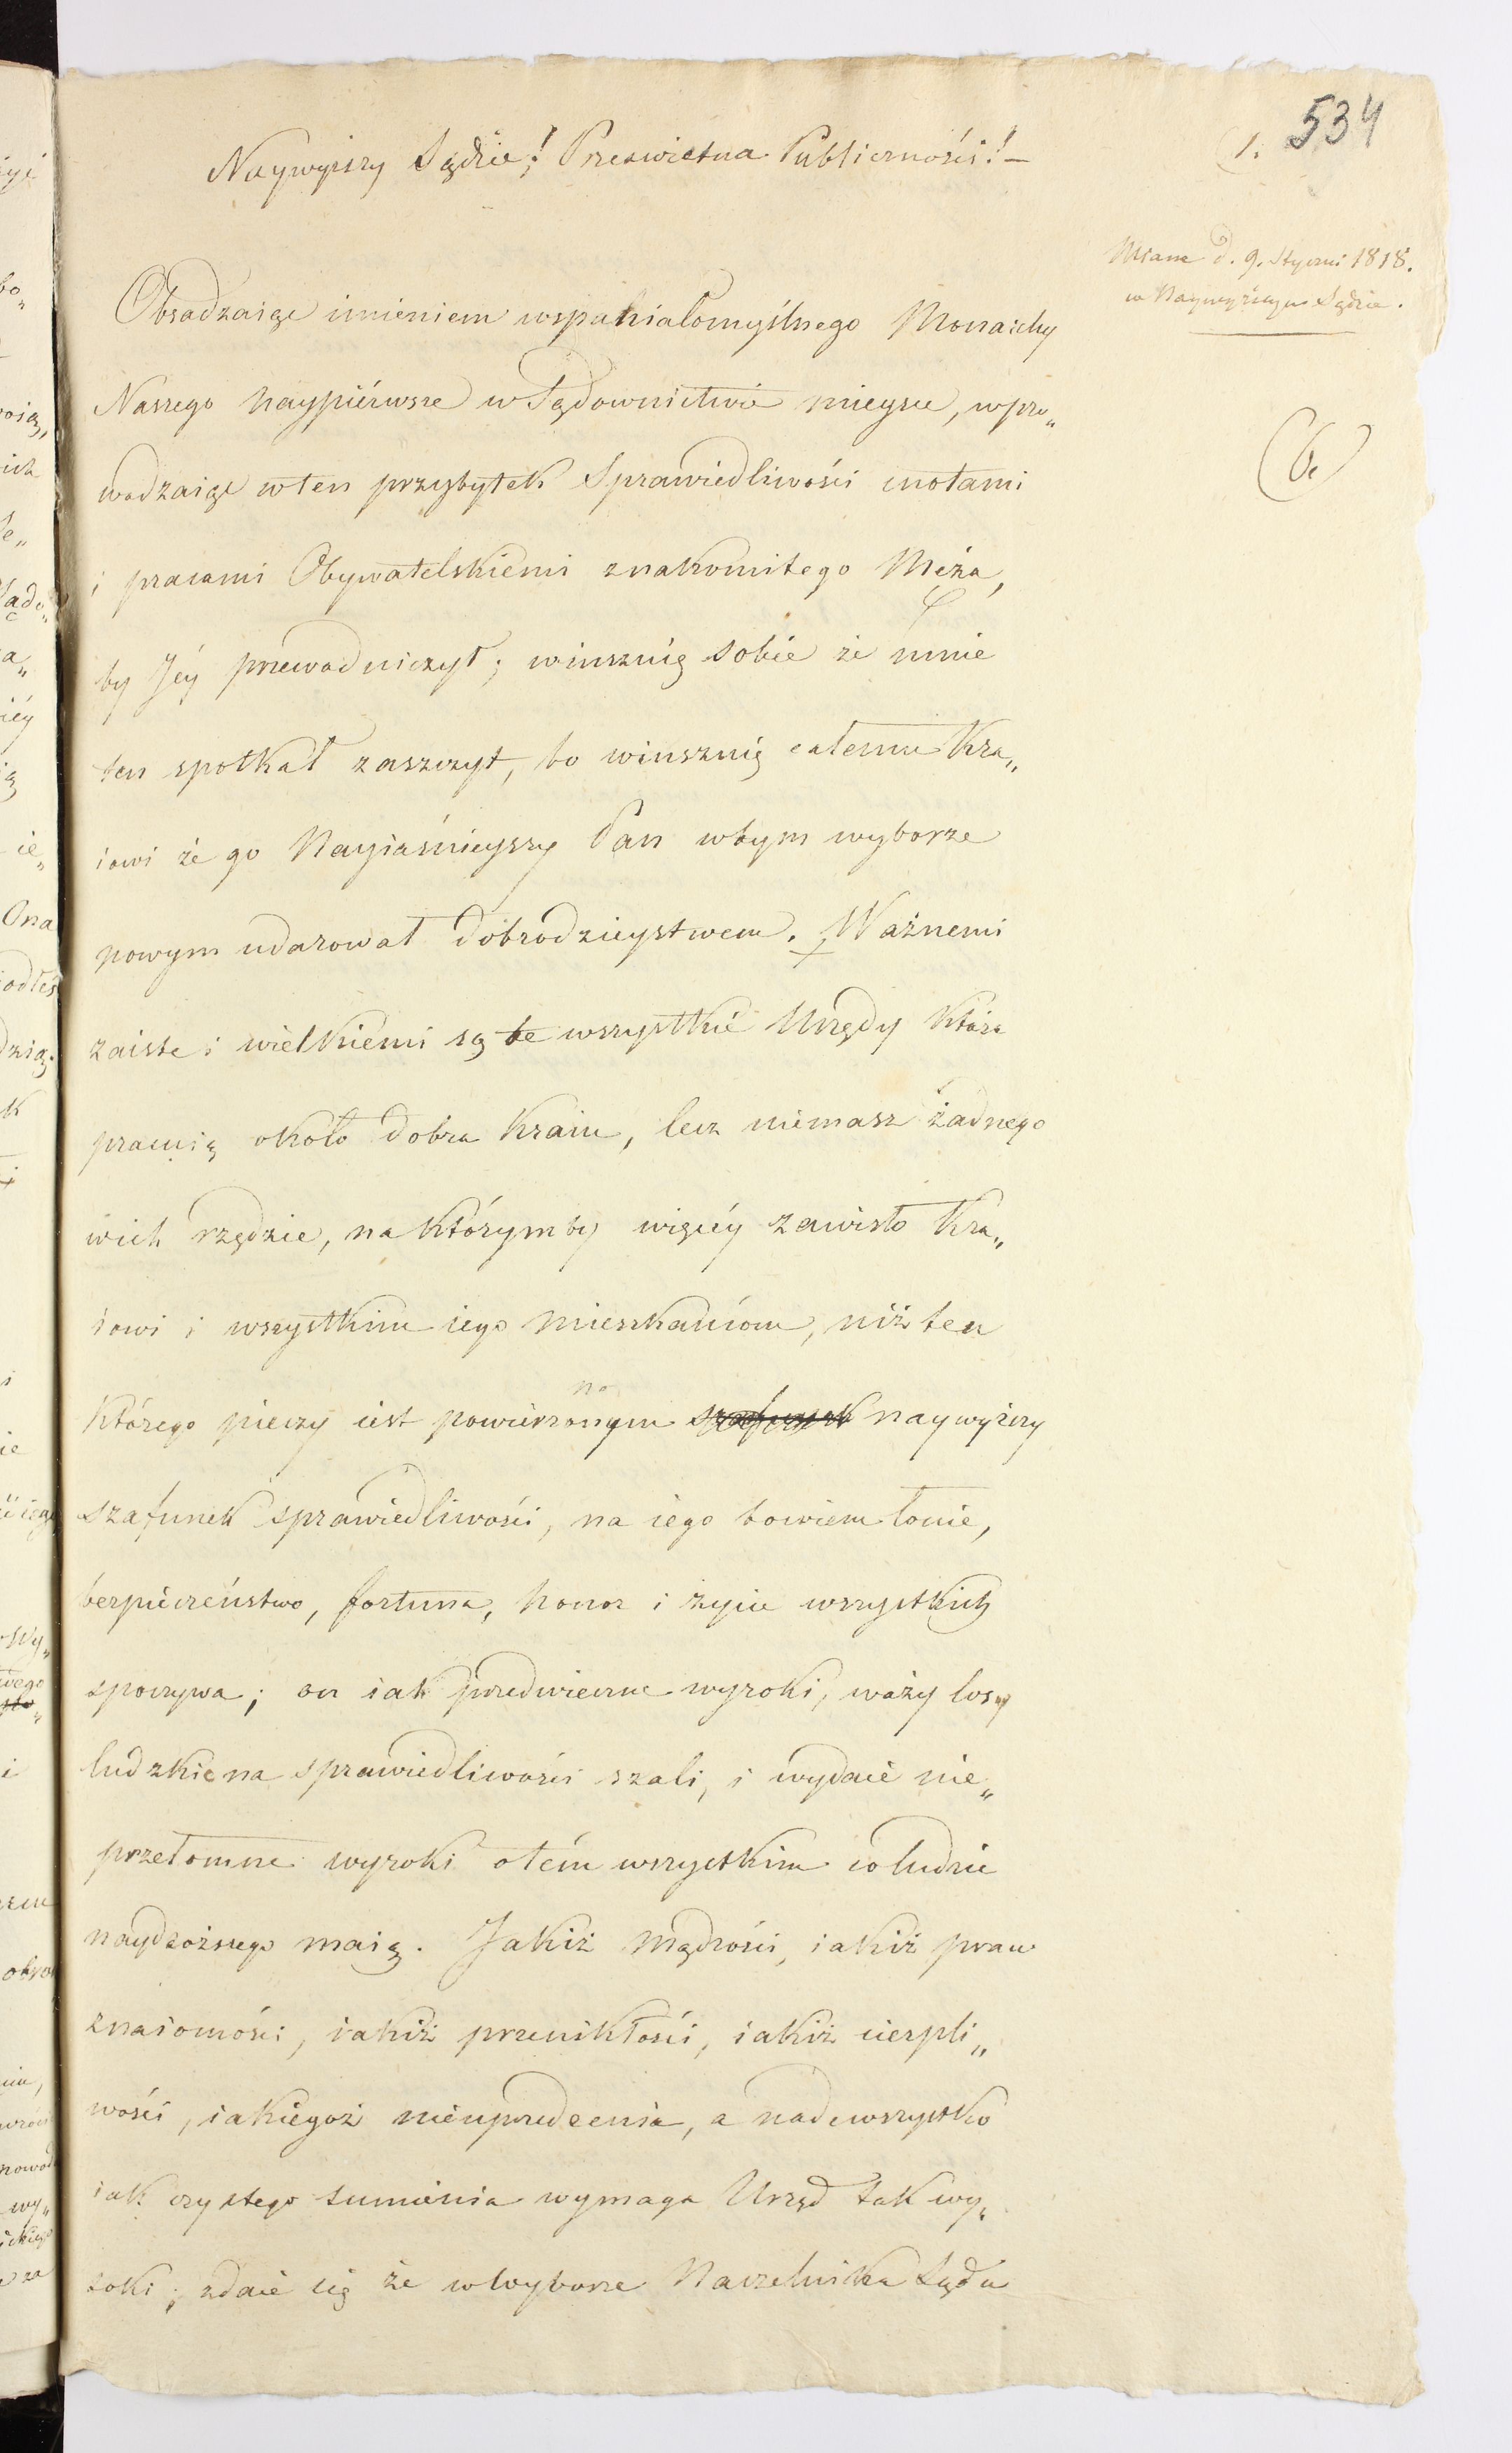 534
1.
Naywyższy Sądzie! Prześwietna Publiczności! –
Miane d. 9. Styczni 1818.
w Naywyższym Sądzie.
Obsadzaiąc imieniem wspaniałomyślnego Monarchy
Naszego naypiérwsze w Sądownictwie mieysce, wpro„
wadzaiąc w ten przybytek Sprawiedliwości cnotami
i pracami Obywatelskiemi znakomitego Męża,
by Jéy przewodniczył; winszuię sobie że mnie
ten spotkał zaszczyt, bo winszuię całemu Kra„
iowi że go Nayiaśnieyszy Pan w tym wyborze
nowym udarował dobrodzieystwem. Ważnemi
zaiste i wielkiemi są te wszystkie Urzędy które
pracuią około dobra Kraiu, lecz niemasz żadnego
w ich rzędzie, na którymby więcéy zawisło Kra„
iowi i wszystkim iego mieszkańcom, niż ten
no
którego pieczy iest powierzonym szafunek naywyższy
szafunek sprawiedliwości, na iego bowiem łonie,
bezpieczeństwo, fortuna, honor i życie wszystkich
spoczywa; on iak przedwieczne wyroki, waży losy
ludzkie na sprawiedliwości szali, i wydaie nie„
przełomne wyroki o tém wszystkim co ludzie
naydroższego maią. Jakiéż mądrości, iakiéż praw
znaiomości, iakiéż przenikłości, iakiéż cierpli„
wości, iakiegoż nieuprzedzenia, a nadewszystko
iak czystego sumienia wymaga Urząd tak wy„
soki; zdaie się że w wyborze Naczelnika Sądu